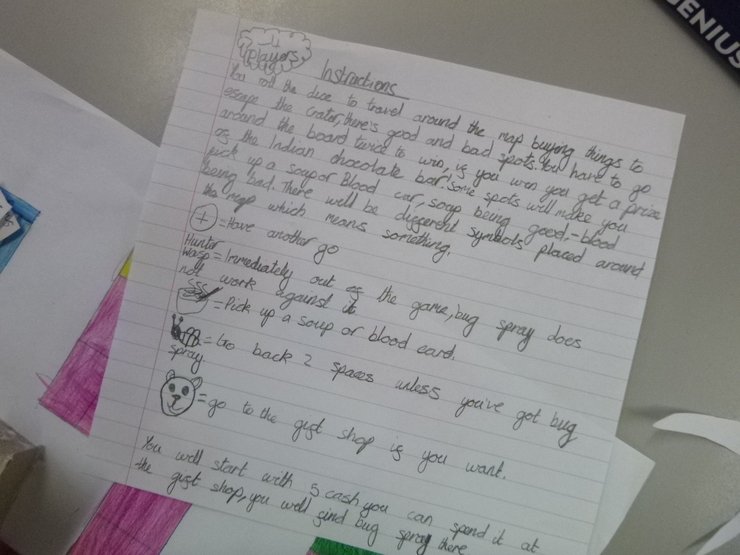 GENIUS
4
players
Instructions
You roll the dice to travel around the map buying things to
escape the crater, there's good and bad spots. You have to go
around the board twice to win, if you win you get a prize
of the Indian chocolate bar. Some spots will make you
pick up a soup or Blood car, soap being good, -blood
being bad. There will be different symbols placed around
the map which means something.
+ = Have another go
Hunter
Wasp = Immediately out of the game, bug spray does
not work against it
= Pick up a soup or blood card.
= Go back 2 spaces unless you've got bug
spray
= go to the gift shop if you want.
You will start with 5 cash you can spend it at
the gift shop, you will find bug spray there